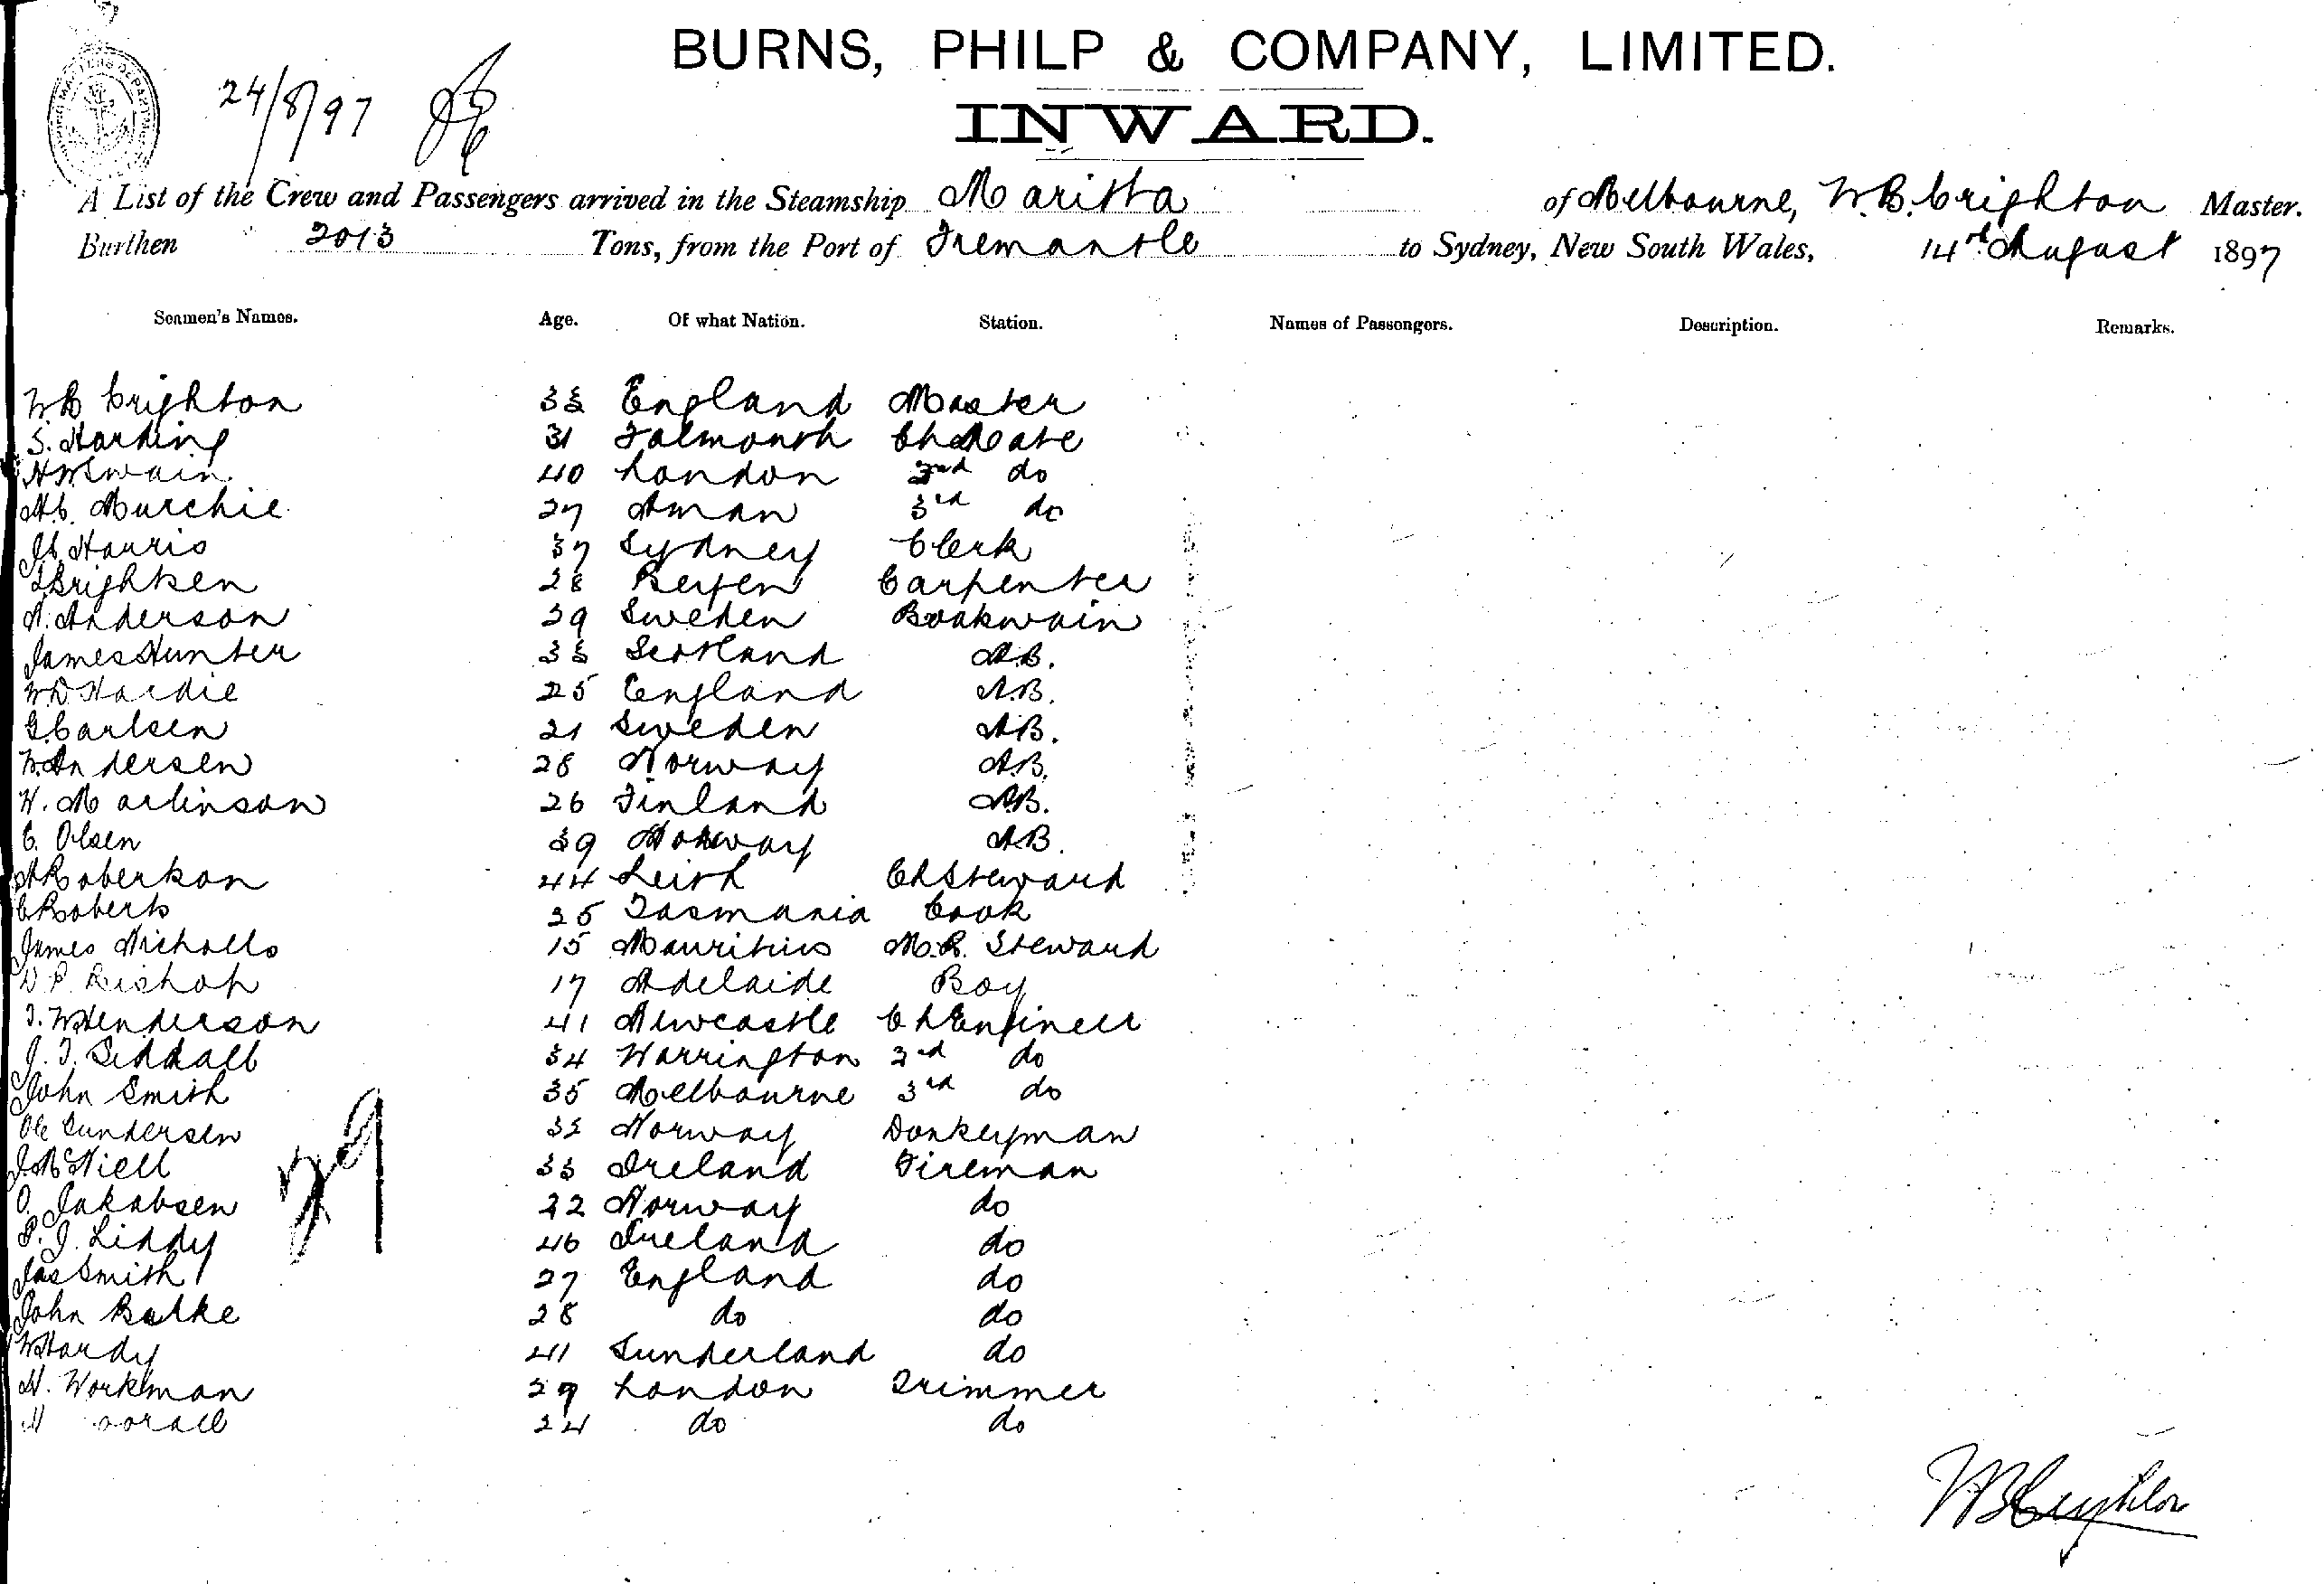 BURNS, PHILP & COMPANY, LIMITED.
24/8/97
INWARD.
A List of the Crew and Passengers arrived in the Steamship Maritta of Melbourne, W.B. Crighton Master.
Burthen 2013 Tons, from the Port of Fremantle to Sydney, New South Wales, 14th August 1897
Seamen's Names. Age. Of what Nation. Station. Names of Passengers. Description. Remarks.
W B Crighton England Master
S. Harding 31 Falmouth Ch Mate
H W Swain 40 London 2nd do
H.C. Murchie 27 3rd do
Harris 37 Sydney Clerk
28 Bergen Carpenter
A. Anderson 39 Sweden
James Hunter Scotland A.B.
W.D. Hardie 25 England A.B.
G. Carlsen 21 Sweden A.B.
W. Andersen 28 Norway A.B.
H. Marlinson 26 Finland A.B.
C. Olsen 39 Norway A.B.
A Robertson 44 Leith Ch Steward
C Roberts 25 Tasmania Cook
James Nicholls 15 Mauritius M.R. Steward
D.P. Bishop 17 Adelaide Boy
T. W Henderson 41 Newcastle Ch Engineer
J. T. Siddall 34 Warrington 2nd do
John Smith 35 Melbourne 3rd do
Ole Gundersen Norway Donkeyman
J. McNiell 33 Ireland Fireman
O. Jakobsen 22 Norway do
P. J. Liddy 46 Ireland do
Jas Smith 27 England do
John Burke 28 do do
W Hardy 41 Sunderland do
H. Workman 29 London Trimmer
24 do do
29
W B Crighton